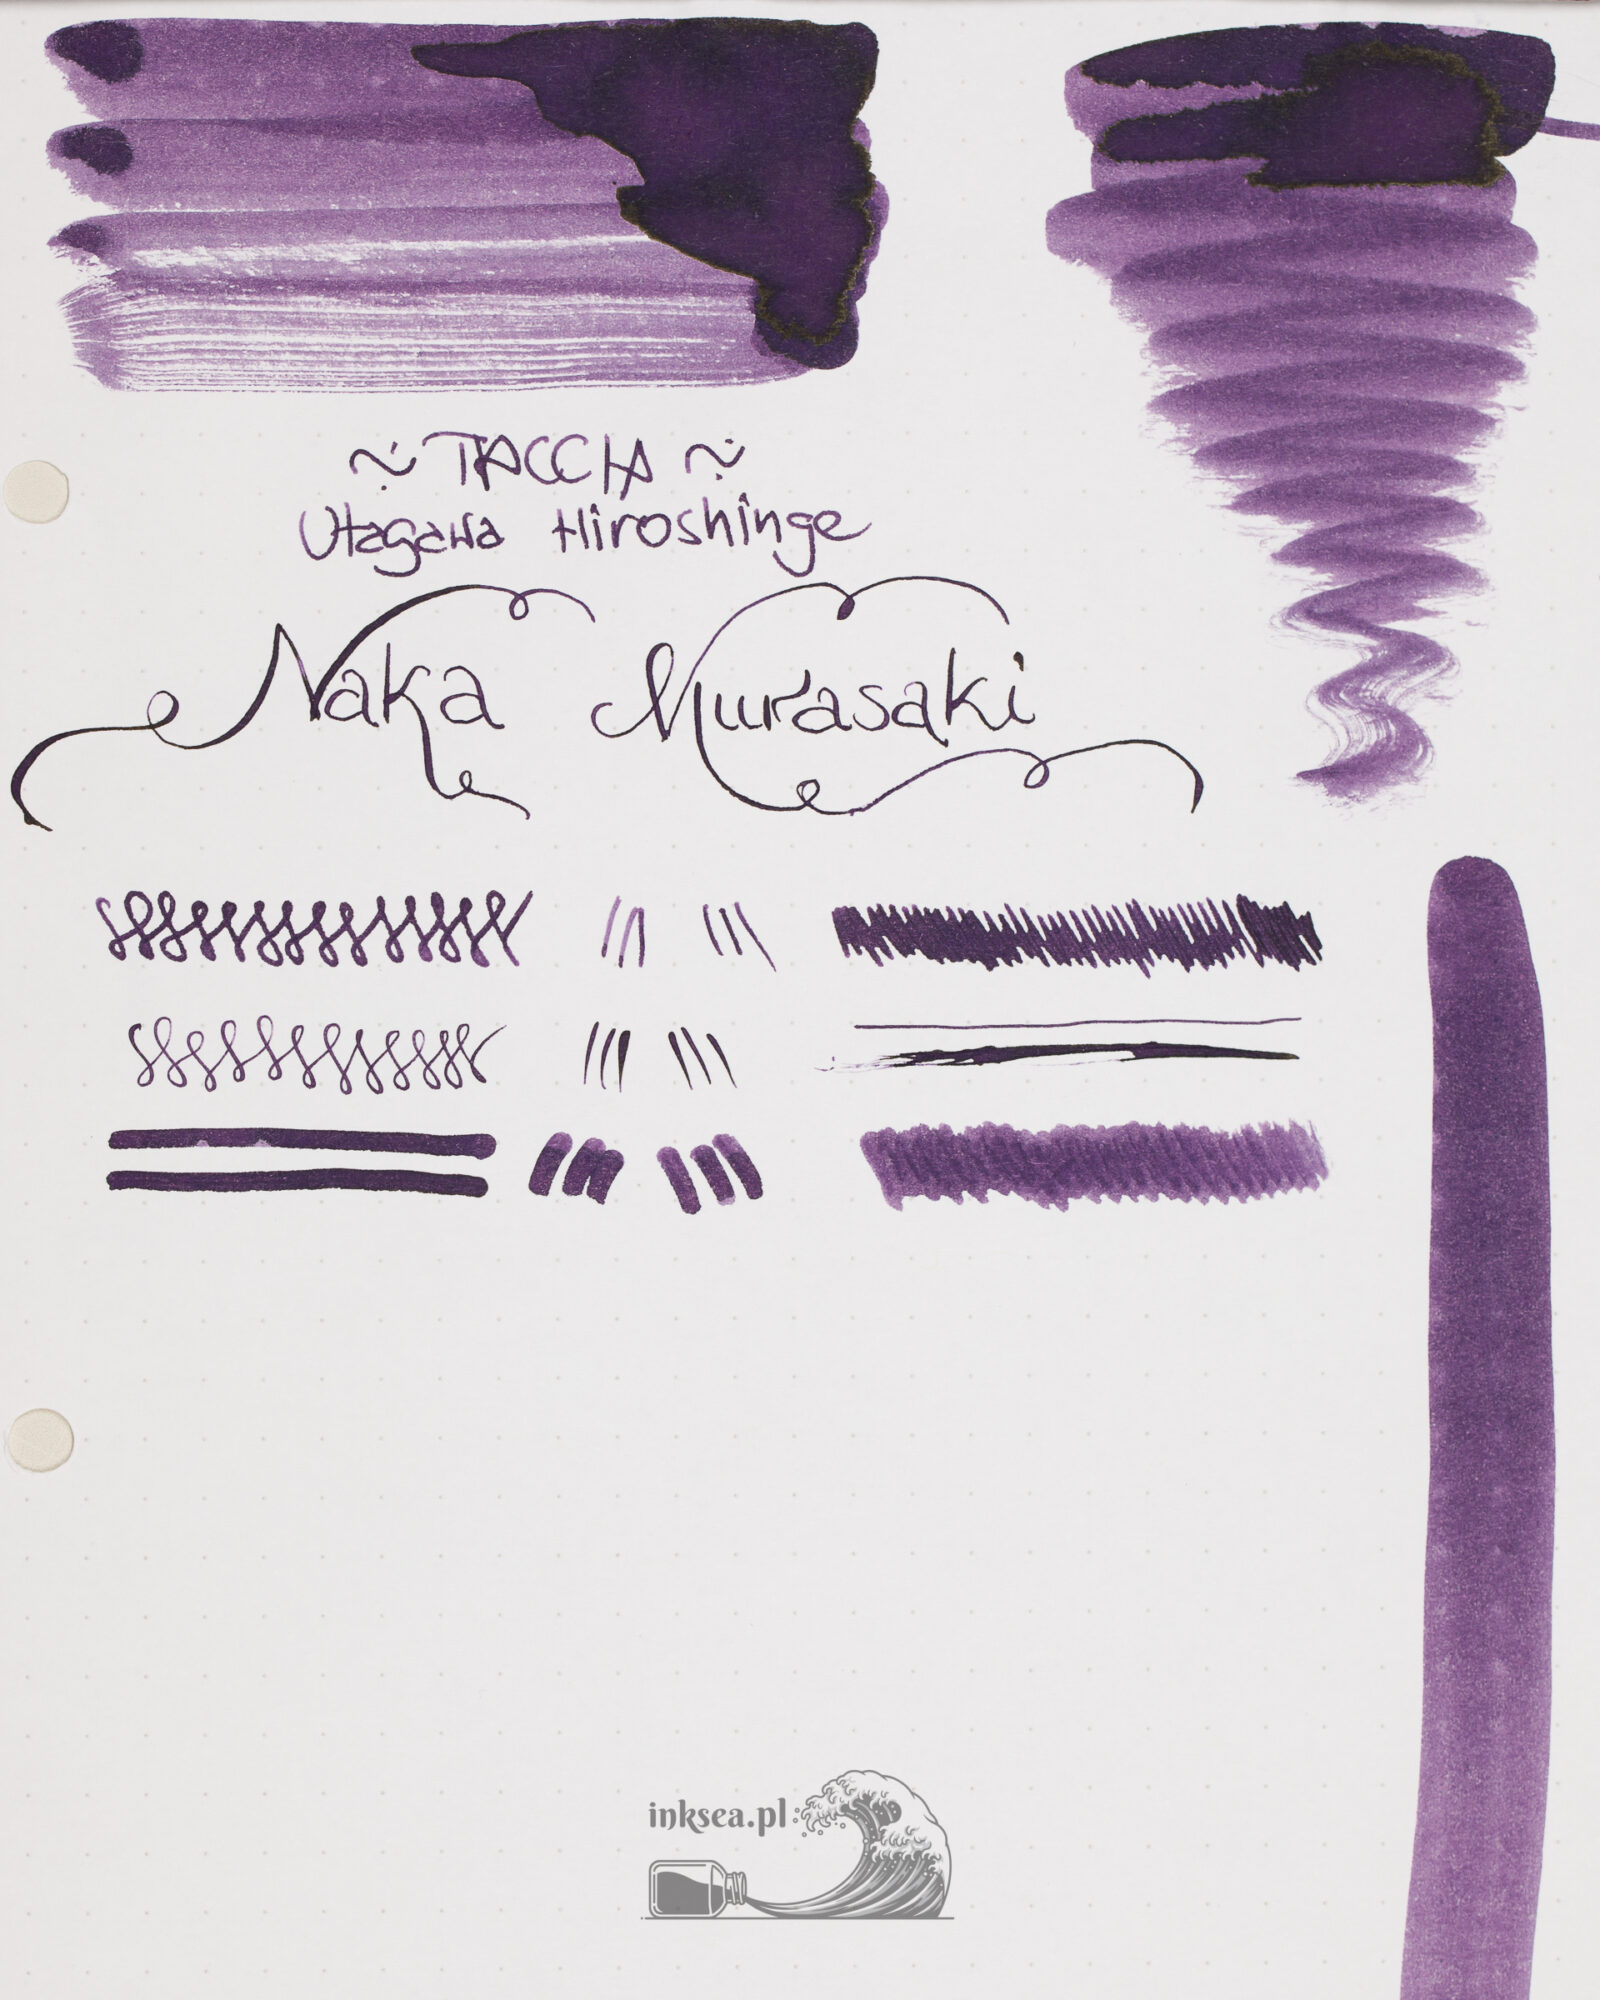 ~ TACCIA ~
Utagawa Hiroshinge
Naka Murasaki
inksea.pl